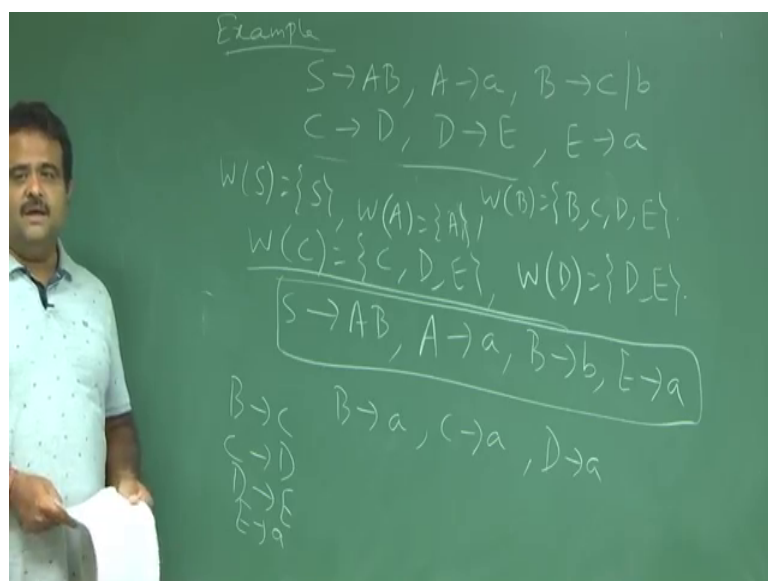 Example
S → AB, A → a, B → C/b
C → D, D → E, E → a
W(S) = {S}, W(A) = {A}, W(B) = {B, C, D, E}.
W(C) = {C, D, E}, W(D) = {D, E}.
S → AB, A → a, B → b, E → a
B → C
B → a, C → a, D → a
C → D
D → E
E → a